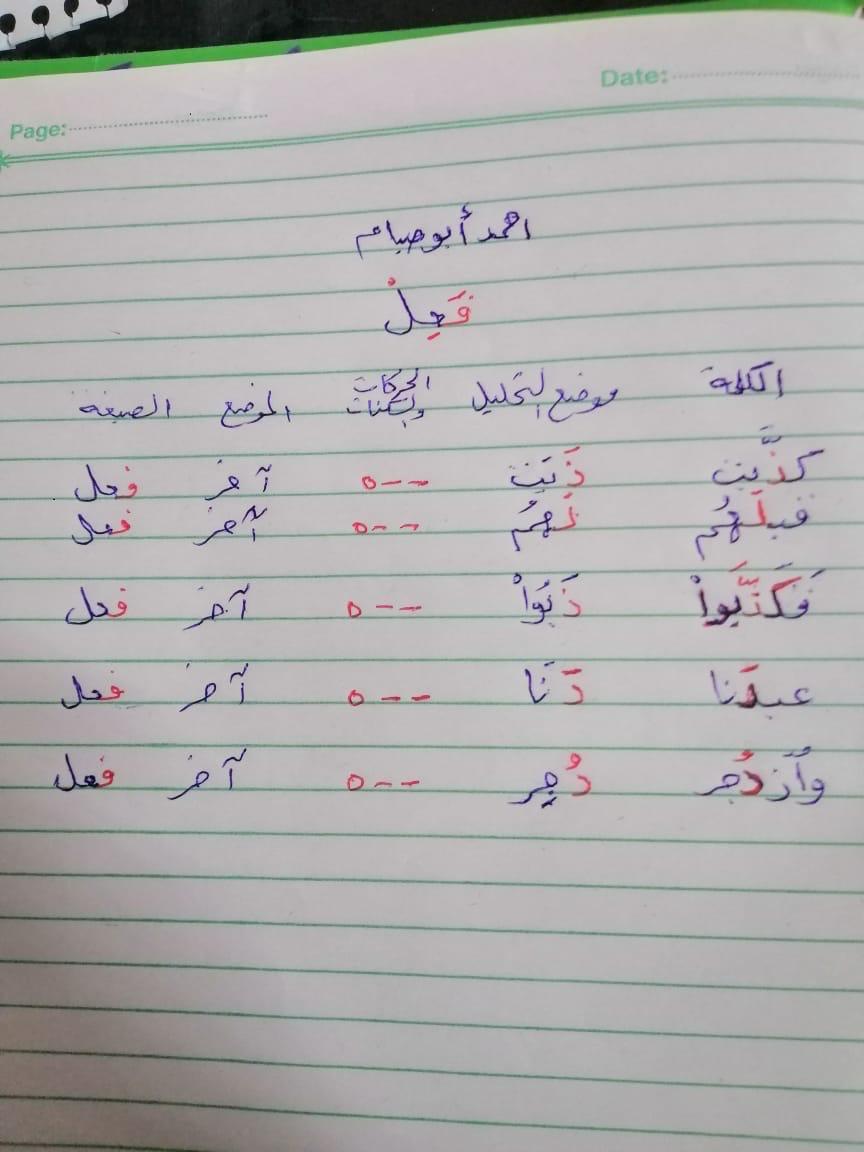 Date:
Page:
احمد أبو صيام
فَعِلْ
الكلمة موضع التحليل الحركات والسكنات الموضع الصيغة
كذَّبت ذَبَت --ه آخر فعل
قبلَهُم لَهُم --ه آخر فعل
فَكَذَّبُواْ ذَبُواْ --ه آخر فعل
عبدَنا دَنَا --ه آخر فعل
وَٱزدُجِر دُجِر --ه آخر فعل